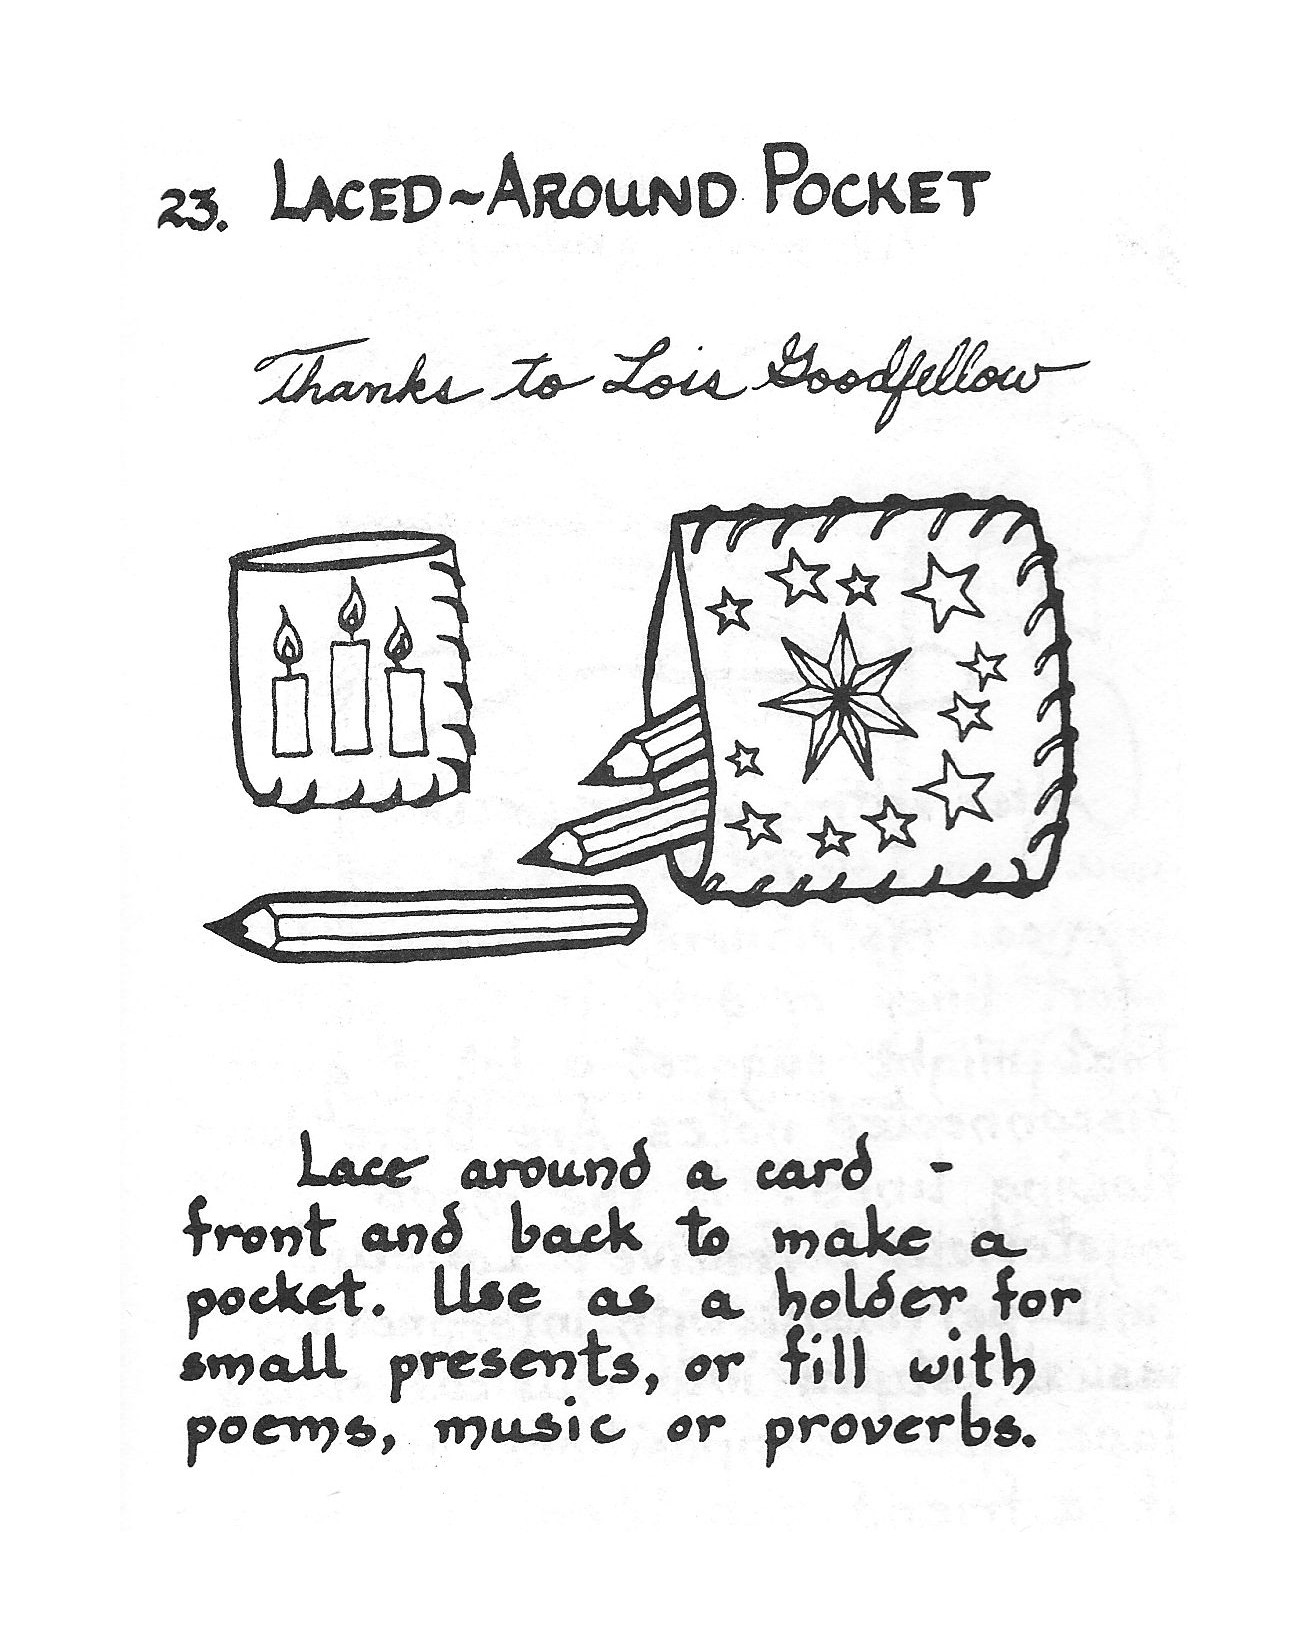 23. LACED~AROUND POCKET
Thanks to Lois Goodfellow
Lace around a card -
front and back to make a
pocket. Use as a holder for
small presents, or fill with
poems, music or proverbs.